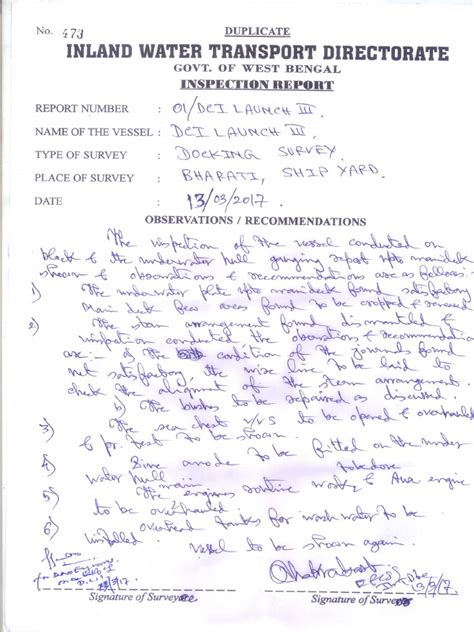 No. 473
DUPLICATE
INLAND WATER TRANSPORT DIRECTORATE
GOVT. OF WEST BENGAL
INSPECTION REPORT
REPORT NUMBER : 01/DCI LAUNCH III.
NAME OF THE VESSEL : DCI LAUNCH III.
TYPE OF SURVEY : DOCKING SURVEY.
PLACE OF SURVEY : BHARATI, SHIP YARD.
DATE : 13/03/2017.
OBSERVATIONS / RECOMMENDATIONS
The inspection of the vessel conducted on
block & the underwater hull gauging report upto maindeck
shown & observations & recommendations are as follows:
1) The underwater plate upto maindeck found satisfactory
Main deck few areas found to be cropped & renewed
2) The stern arrangement found dismantled &
inspection conducted the observations & recommendation
are:- a) The condition of the journals found
not satisfactory the wire line to be laid to
check the alignment of the stern arrangement
b) The bushes to be repaired as discussed.
3) The sea chest v/vs to be opened & overhauled
& pr. test to be shown.
4) Zinc anode to be fitted on the under
water hull.
5) The engines routine works & Aux engine
to be overhauled.
6) overhead tanks for wash water to be
installed.
vessel to be shown again.
13/3/17
Signature of Surveyee
Signature of Surveyor